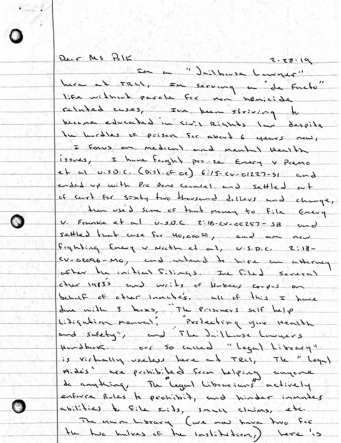 Dear Ms Polk 2-28-19
I'm a "Jailhouse Lawyer"
here at TRCI, I'm serving a "de facto"
life without parole for non homicide
related cases, I've been striving to
become educated in Civil Rights law despite
the hurdles of prison for about 6 years now,
I focus on medical and mental Health
issues, I have fought pro-se Emery v Premo
et al U.S.D.C. (Dist. of Or) 6:15-cv-01227-SI and
ended up with Pro Bono Counsel and settled out
of court for sixty two thousand dollars and change,
then used some of that money to file Emery
v. Franke et al U.S.D.C. 2:16-cv-00257-SB and
settled that case for 40,000, and am now
fighting Emery v Nooth et al, U.S.D.C. 2:18-
cv-02096-MO, and intend to hire an attorney
after the initial filings. I've filed several
other 1983s and writs of Habeas Corpus on
behalf of other inmates. all of this I have
done with 3 books, "The Prisoners self help
Litigation manual", "Protecting your Health
and Safety", and "The Jailhouse Lawyers
Handbook. or so called "Legal Library"
is virtually useless here at TRCI, The "Legal
Aides" are prohibited from helping anyone
do anything. The "Legal Librarians" actively
enforce Rules to prohibit, and hinder inmates
abilities to file suits, small claims, etc.
The main Library (we now have two for
the two halves of the institution,) here is